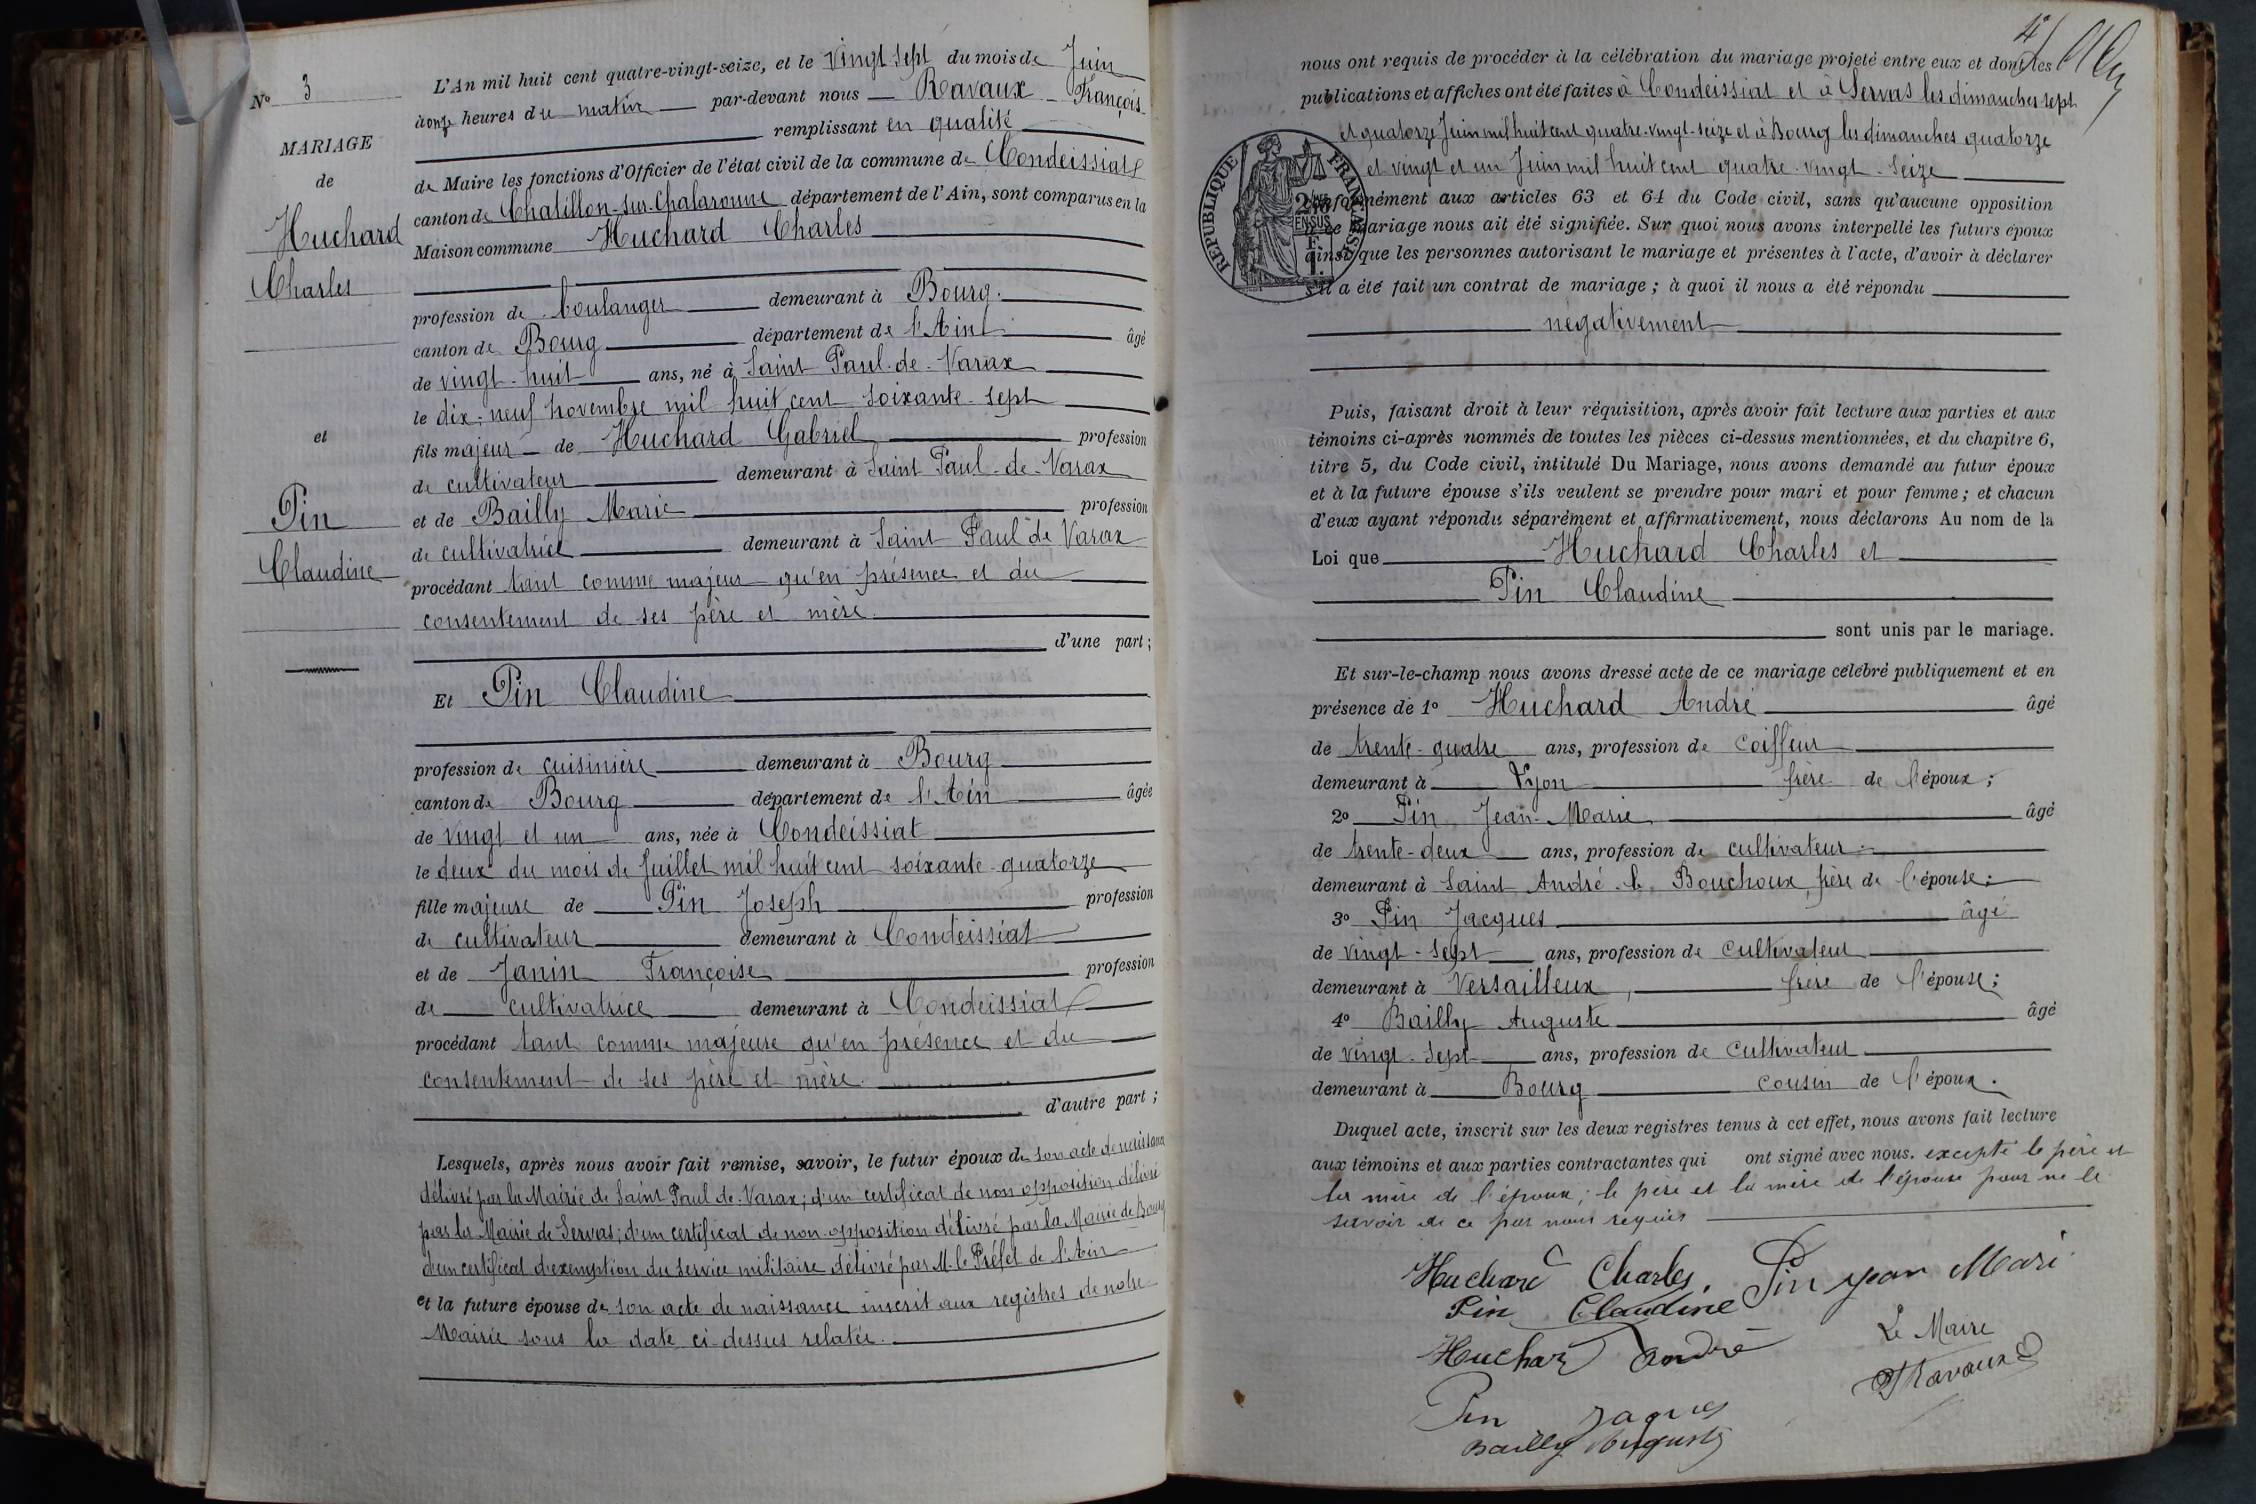 Nº 3
MARIAGE
de
Huchard
Charles
et
Pin
Claudine
L'An mil huit cent quatre-vingt-seize, et le vingt sept du mois de Juin
à onze heures du matin par-devant nous Ravaux François
remplissant en qualité
de Maire les fonctions d'Officier de l'état civil de la commune de Condeissiat
canton de Chatillon-sur-Chalaronne département de l'Ain, sont comparus en la
Maison commune Huchard Charles
profession de boulanger demeurant à Bourg.
canton de Bourg département de l'Ain âgé
de vingt-huit ans, né à Saint Paul-de-Varax
le dix-neuf novembre mil huit cent soixante-sept
fils majeur de Huchard Gabriel profession
de cultivateur demeurant à Saint Paul-de-Varax
et de Bailly Marie profession
de cultivatrice demeurant à Saint Paul de Varax
procédant tant comme majeur qu'en présence et du
consentement de ses père et mère.
d'une part;
Et Pin Claudine
profession de cuisinière demeurant à Bourg
canton de Bourg département de l'Ain âgée
de vingt et un ans, née à Condeissiat
le deux du mois de Juillet mil huit cent soixante-quatorze
fille majeure de Pin Joseph profession
de cultivateur demeurant à Condeissiat
et de Janin Françoise profession
de cultivatrice demeurant à Condeissiat
procédant tant comme majeure qu'en présence et du
consentement de ses père et mère.
d'autre part;
Lesquels, après nous avoir fait remise, savoir, le futur époux de son acte de naissance
délivré par la Mairie de Saint Paul de-Varax; d'un certificat de non opposition délivré
par la Mairie de Servas; d'un certificat de non-opposition délivré par la Mairie de Bourg
d'un certificat d'exemption du service militaire délivré par M. le Préfet de l'Ain
et la future épouse de son acte de naissance inscrit aux registres de notre
Mairie sous la date ci-dessus relatée.
nous ont requis de procéder à la célébration du mariage projeté entre eux et dont les
publications et affiches ont été faites à Condeissiat et à Servas les dimanches sept
et quatorze Juin mil huit cent quatre-vingt-seize et à Bourg les dimanches quatorze
et vingt et un Juin mil huit cent quatre-vingt-seize
RÉPUBLIQUE FRANÇAISE
conformément aux articles 63 et 64 du Code civil, sans qu'aucune opposition
à ce mariage nous ait été signifiée. Sur quoi nous avons interpellé les futurs époux
ainsi que les personnes autorisant le mariage et présentes à l'acte, d'avoir à déclarer
s'il a été fait un contrat de mariage; à quoi il nous a été répondu
négativement
Puis, faisant droit à leur réquisition, après avoir fait lecture aux parties et aux
témoins ci-après nommés de toutes les pièces ci-dessus mentionnées, et du chapitre 6,
titre 5, du Code civil, intitulé Du Mariage, nous avons demandé au futur époux
et à la future épouse s'ils veulent se prendre pour mari et pour femme; et chacun
d'eux ayant répondu séparément et affirmativement, nous déclarons Au nom de la
Loi que Huchard Charles et
Pin Claudine
sont unis par le mariage.
Et sur-le-champ nous avons dressé acte de ce mariage célébré publiquement et en
présence de 1º Huchard André âgé
de trente-quatre ans, profession de coiffeur
demeurant à Lyon frère de l'époux;
2º Pin Jean-Marie âgé
de trente-deux ans, profession de cultivateur
demeurant à Saint André-le-Bouchoux frère de l'épouse;
3º Pin Jacques âgé
de vingt-sept ans, profession de cultivateur
demeurant à Versailleux, frère de l'épouse;
4º Bailly Auguste âgé
de vingt-sept ans, profession de cultivateur
demeurant à Bourg cousin de l'époux.
Duquel acte, inscrit sur les deux registres tenus à cet effet, nous avons fait lecture
aux témoins et aux parties contractantes qui ont signé avec nous. excepté le père et
la mère de l'époux; le père et la mère de l'épouse pour ne le
savoir de ce par nous requis
Huchard Charles. Pin jean Mari
Pin Claudine
Le Maire
Huchard André
Ravaux
Pin Jaques
Bailly Auguste